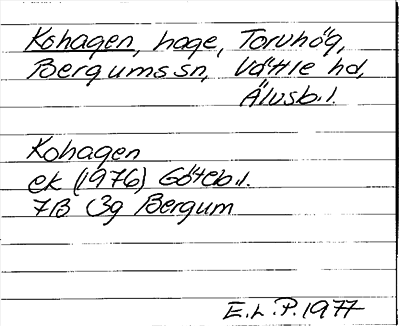 Kohagen, hage, Torvhög,
Bergums sn, Vättle hd,
Älvsb.l.
Kohagen
ek (1976) Göteb.l.
7B 3g Bergum
E.L.P. 1977